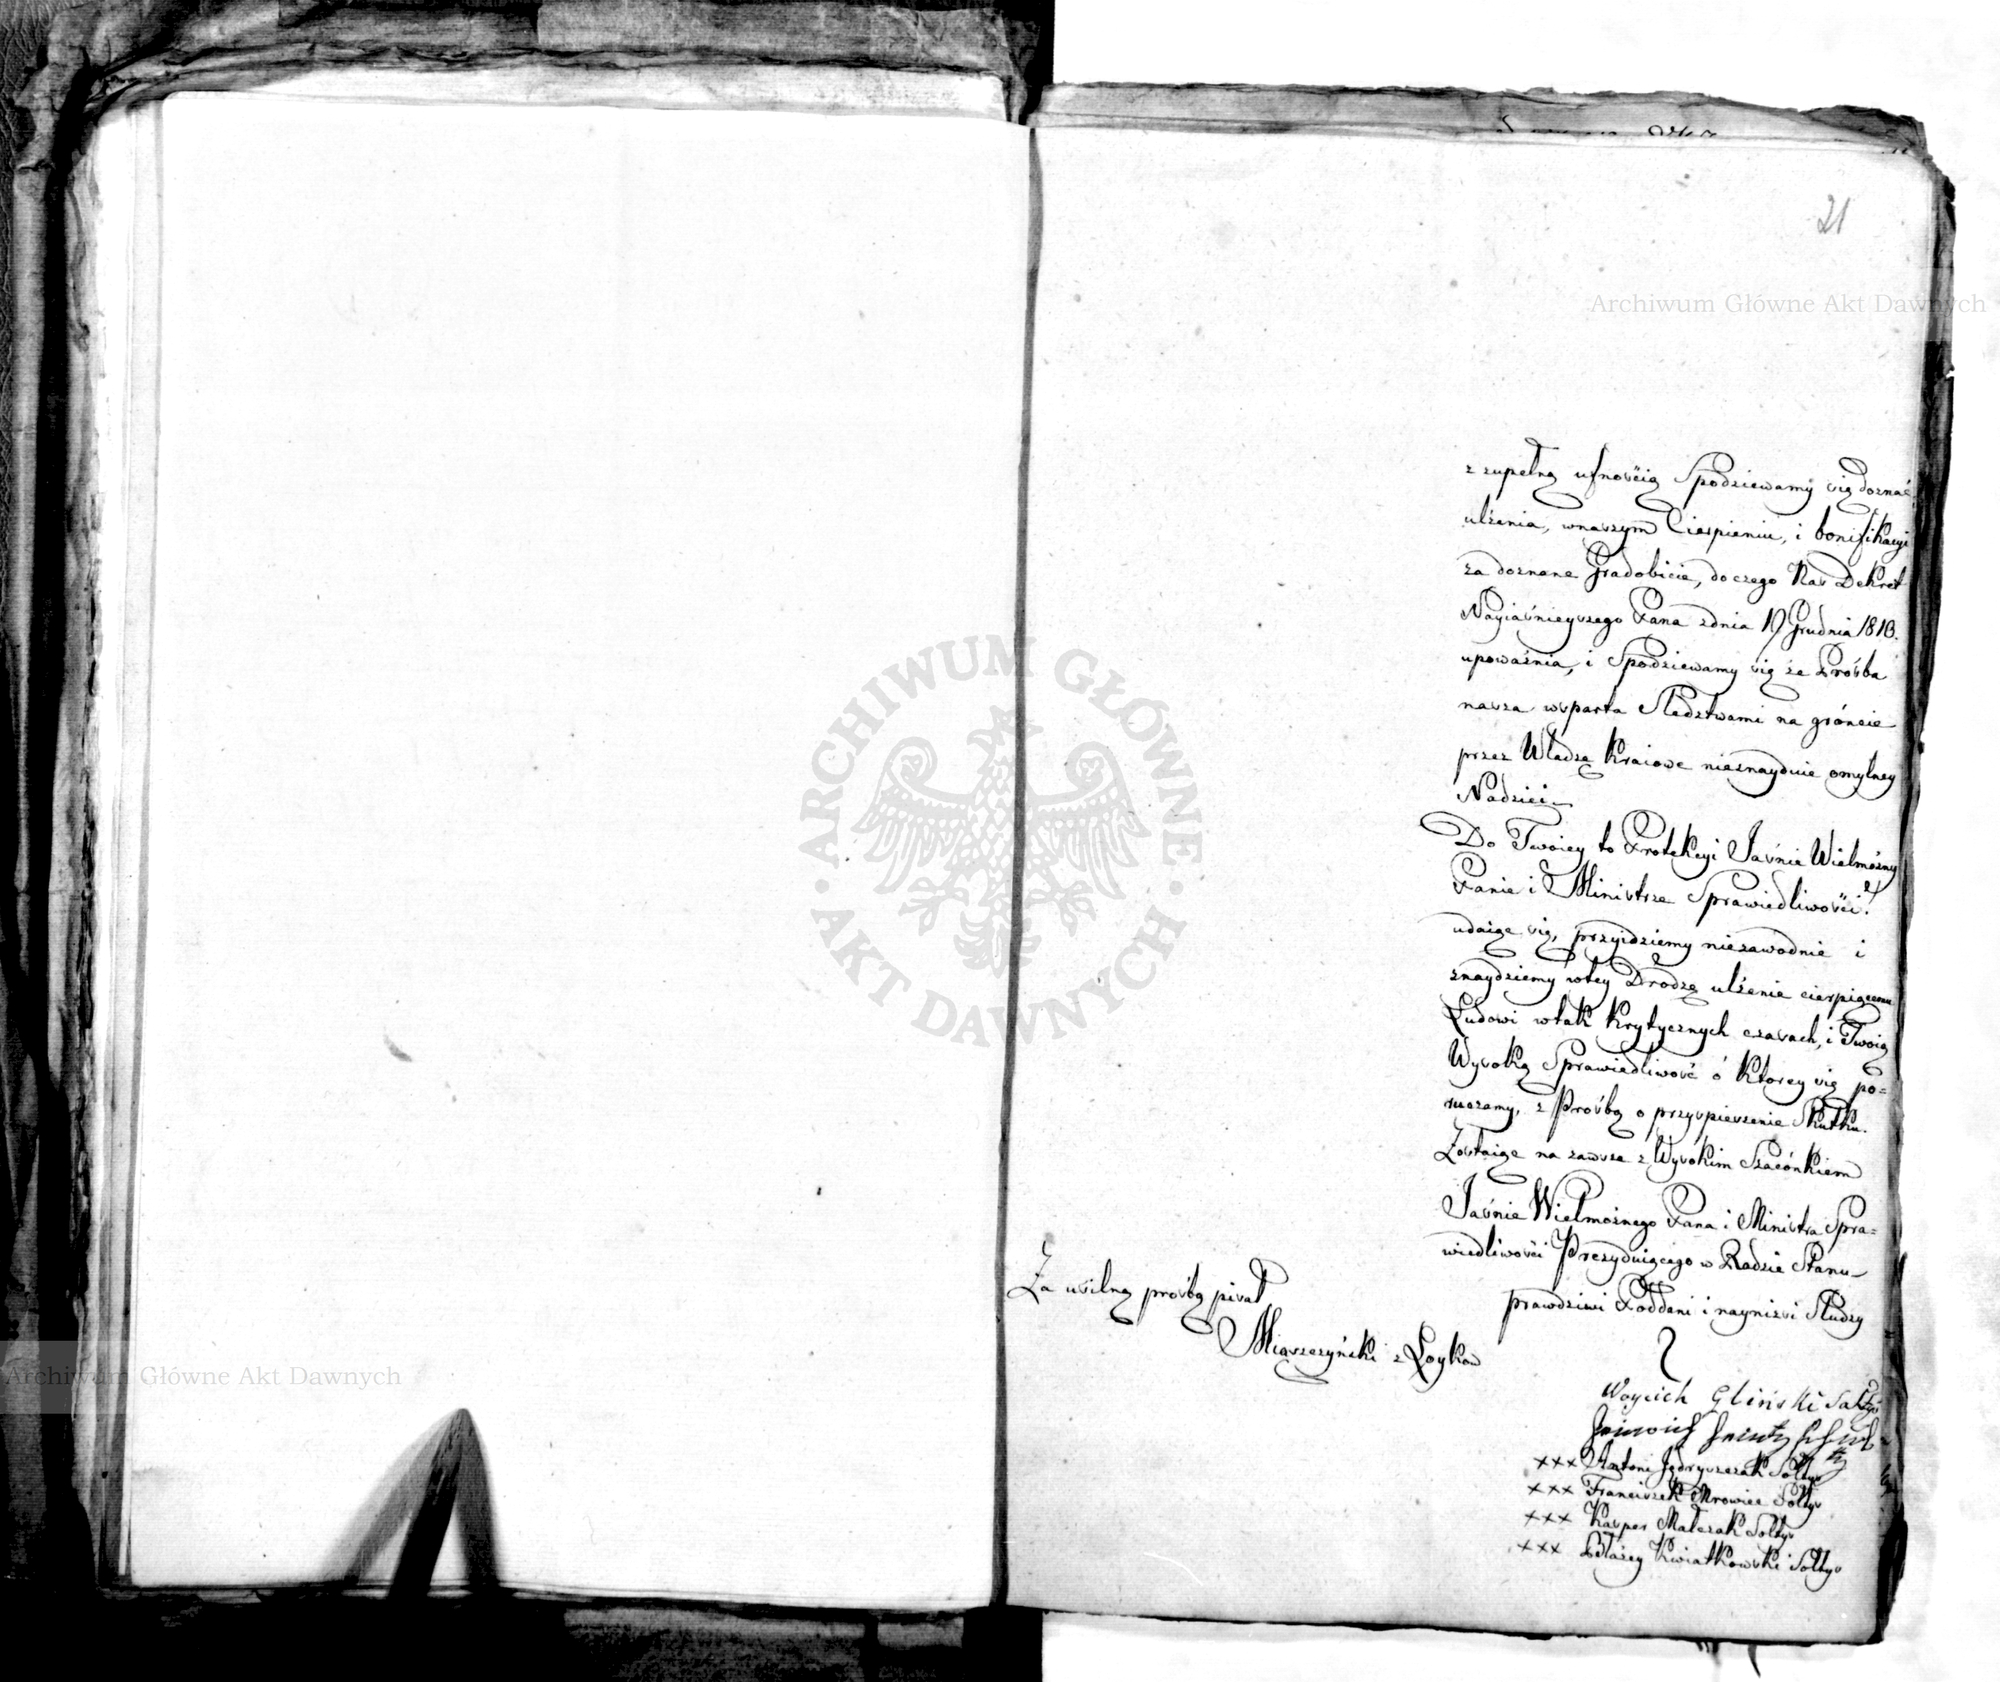 21
Archiwum Główne Akt Dawnych
z zupełną ufnością Spodziewamy się doznać
ulżenia, wnaszym Cierpieniu, i bonifikacyi
za doznane Gradobicie, do czego Nas Dekret
Nayiaśnieyszego Pana zdnia 19 Grudnia 1810.
upoważnia, i Spodziewamy się że Prośba
nasza wsparta Sledztwami na gróncie
przez Władzę Kraiowe nieznayduie omylney
Nadziei
Do Twoiey to Protekcyi Jaśnie Wielmożny
Panie i Ministrze Sprawiedliwości!
udaiąc się, przyidziemy niezawodnie i
znaydziemy wtey Drodze ulżenie cierpiącemu
Ludowi wtak Krytycznych czasach, i Twoią
Wysoką Sprawiedliwość ó Ktorey się po=
ruczamy, z Prośbą o przyspieszenie Skutku.
Zostaiąc na zawsze z Wysokim Szacónkiem
Jaśnie Wielmożnego Pana i Ministra Spra=
wiedliwości Prezyduiącego w Radzie Stanu
prawdziwi Poddani i naynizsi Słudzy
Za usilną prośbą pisał
Miąszczyński z Łoykow
Woycich Glinski Sołtys
xxx Antoni Jędryszczak Sołtys
xxx Franciszek Mrowiec Sołtys
xxx Kasper Malczak Sołtys
xxx Błażey Kwiatkowski Sołtys
ARCHIWUM GŁÓWNE
AKT DAWNYCH
Archiwum Główne Akt Dawnych